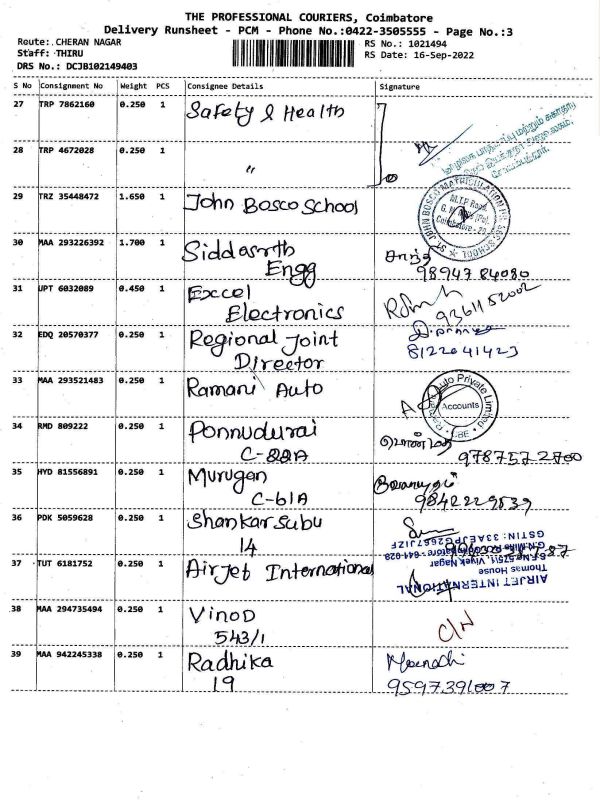 THE PROFESSIONAL COURIERS, Coimbatore
Delivery Runsheet - PCM - Phone No.:0422-3505555 - Page No.:3
Route: CHERAN NAGAR RS No.: 1021494
Staff: THIRU RS Date: 16-Sep-2022
DRS No.: DCJB102149403
S No Consignment No Weight PCS Consignee Details Signature
27 TRP 7862160 0.250 1 Safety & Health
28 TRP 4672028 0.250 1 "
29 TRZ 35448472 1.650 1 John Bosco School
ST. JOHN BOSCO MATRICULATION HR. SEC. SCHOOL
M.T.P. Road,
Coimbatore - 29
30 MAA 293226392 1.700 1 Siddaarth
Engg
சாந்தி
9894784080
31 UPT 6032089 0.450 1 Excel
Electronics
9361152002
32 EDQ 20570377 0.250 1 Regional Joint
Director
8122041423
33 MAA 293521483 0.250 1 Ramani Auto
Ramani Auto Private Limited
Accounts
CBE
34 RMD 809222 0.250 1 Ponnudurai
C-22A
9787572700
35 HYD 81556891 0.250 1 Murugan
C-61A
9842229839
36 PDK 5059628 0.250 1 Shankarsubu
14
37 TUT 6181752 0.250 1 Airjet International
AIRJET INTERNATIONAL
Thomas House
SF.No.575/1, Vivek Nagar
GSTIN: 33AEJPG2667J1ZF
38 MAA 294735494 0.250 1 Vinod
543/1
39 MAA 942245338 0.250 1 Radhika
19
Meenachi
9597391007